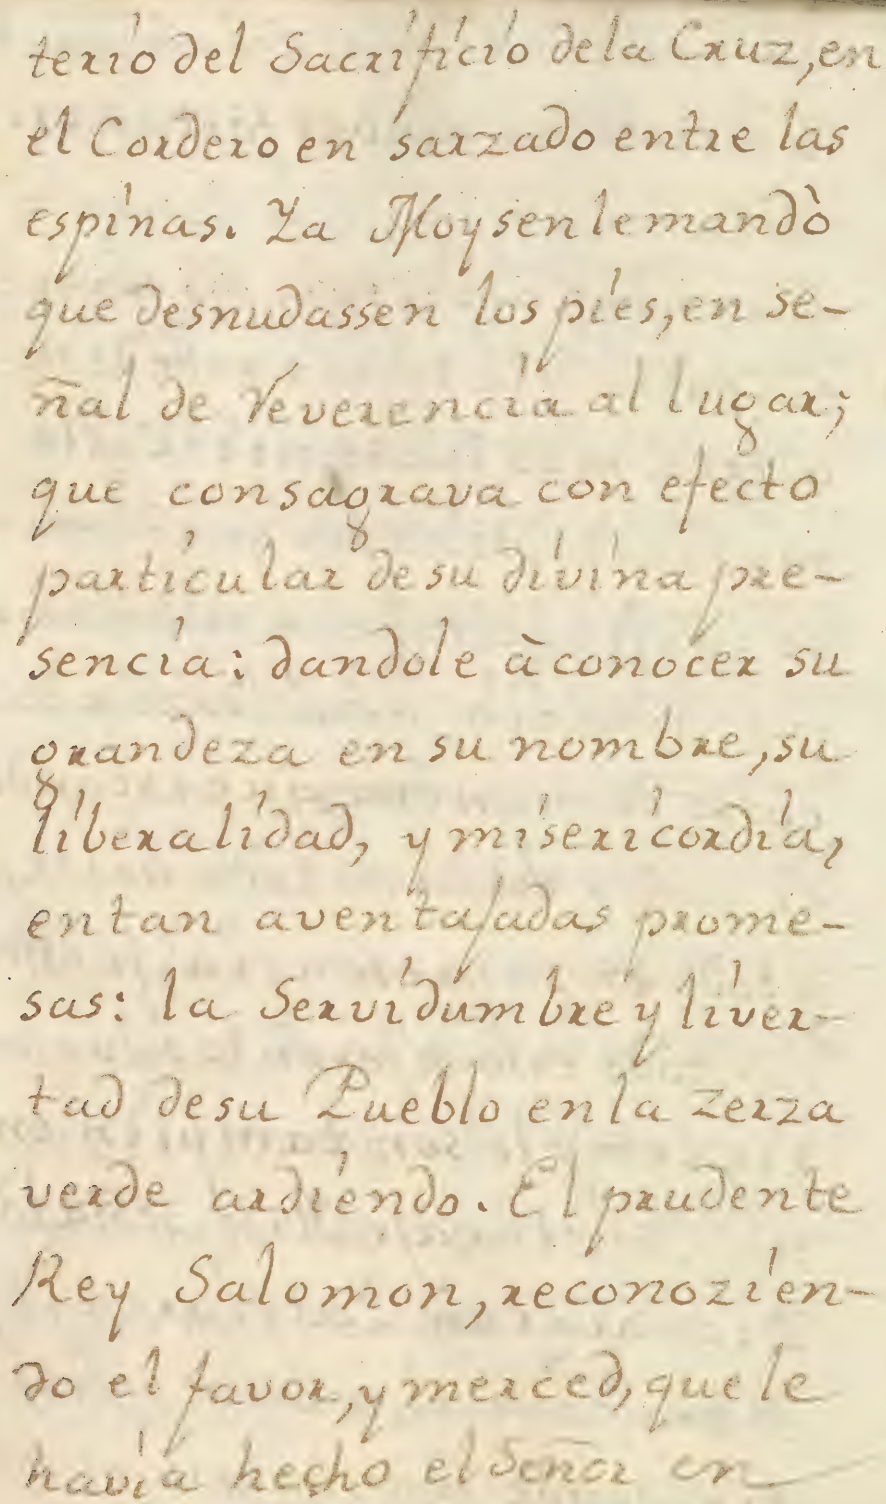 terio del Sacrificio dela Cruz, en
el Cordero en sarzado entre las
espinas. Ya Moysen le mandò
que desnudassen los pies, en se-
ñal de reverencia al lugar;
que consagrava con efecto
particular de su divina pre-
sencia: dandole à conocer su
grandeza en su nombre, su
liberalidad, y misericordia,
entan aventajadas prome-
sas: la Servidumbre y liver-
tad desu Pueblo en la zerza
verde ardiendo. El prudente
Rey Salomon, reconozien-
do el favor, y merced, que le
havia hecho el Señor en